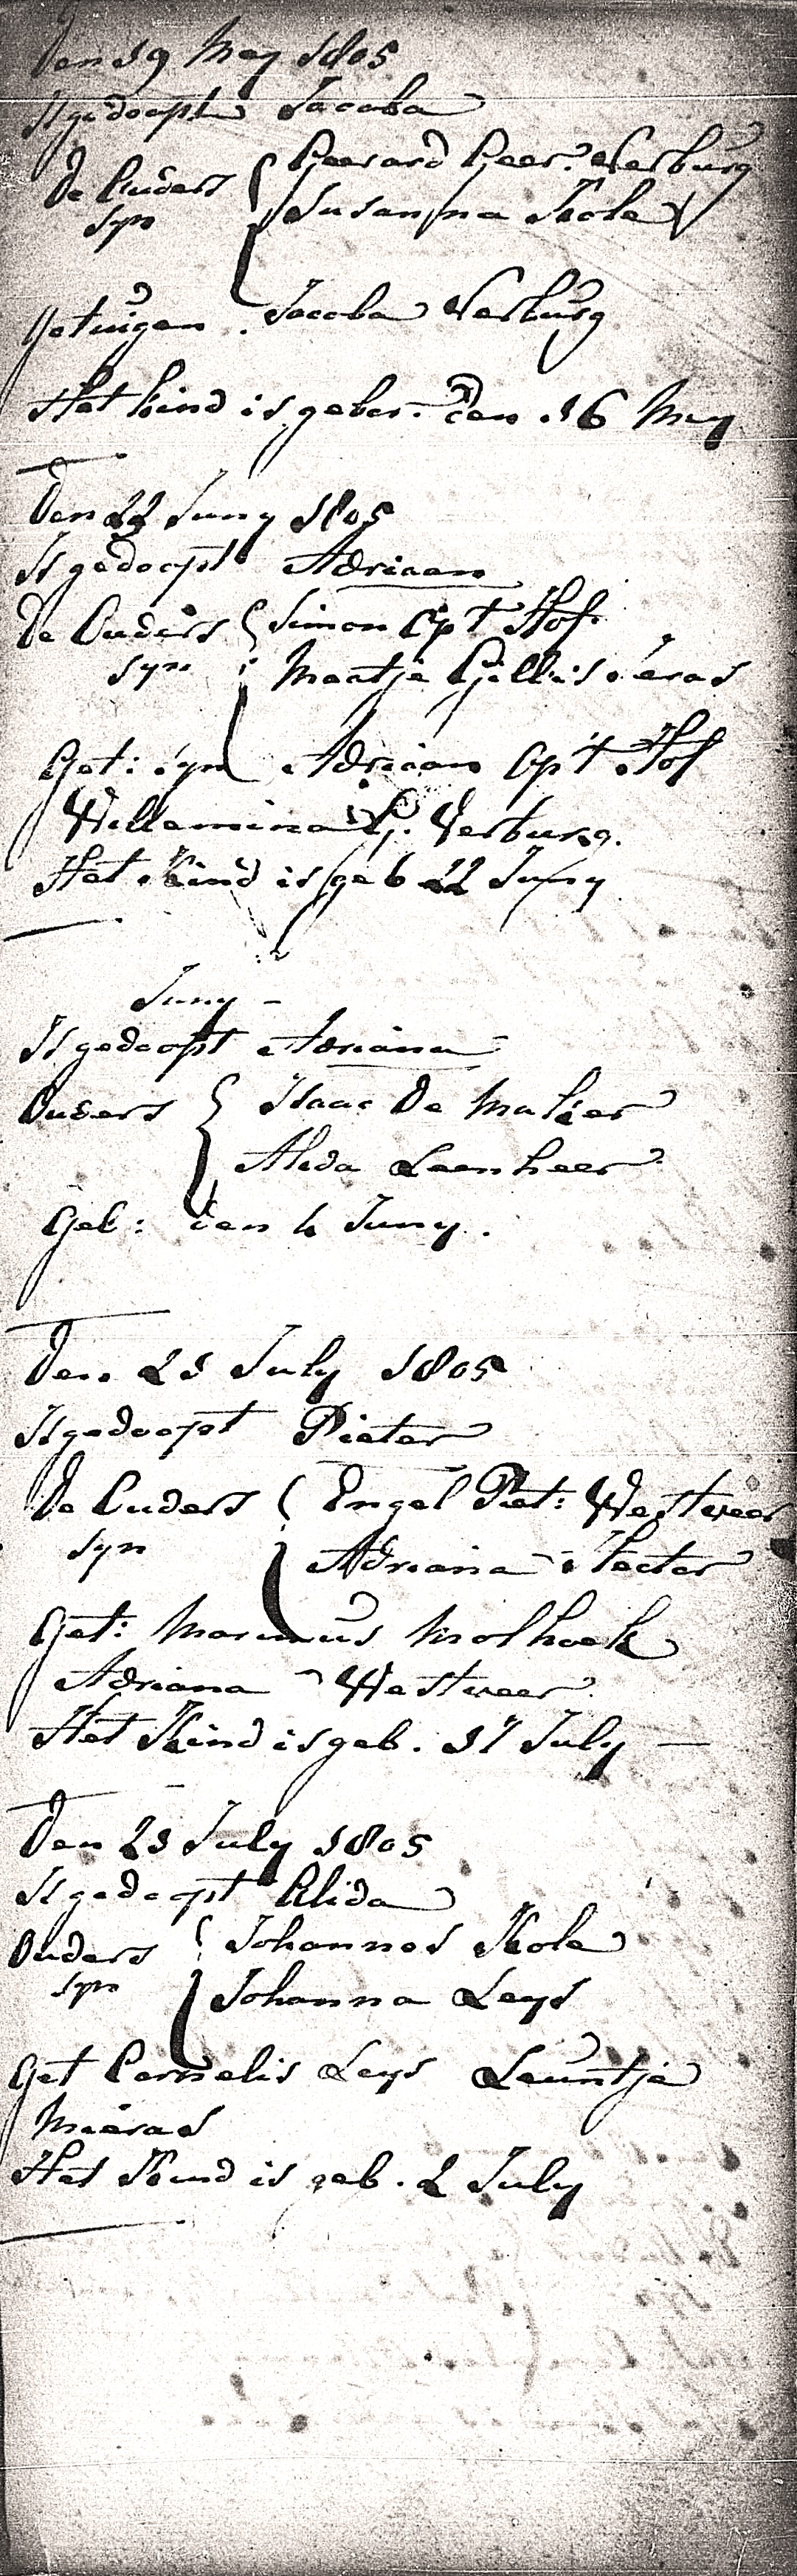 Den 19 Mey 1805
Is gedoopt Jacoba
De Ouders Geerard Geer: Verburg
syn Susanna Kole
Getuigen . Jacoba Verburg
Het kind is gebor. den 16 Mey
Den 23 Juny 1805
Is gedoopt Adriaan
De Ouders Simon Op 't Hof
syn Maatje Gillis Meras
Get: syn Adriaan Op 't Hof
Willemina G. Verburg.
Het Kind is geb 22 Juny
Juny -
Is gedoopt Adriana
Ouders Isaac De Mulier
Alida Leenheer
Geb: den 4 Juny.
Den 21 July 1805
Is gedoopt Pieter
De Ouders Engel Piet: Westveer
syn Adriana Hecter
Get: Marinus Molhoek
Adriana Westveer
Het Kind is geb. 17 July —
Den 21 July 1805
Is gedoopt Alida
Ouders Johannes Kole
syn Johanna Leys
Get Cornelis Leys Leuntje
Mieras
Het Kind is geb. 2 July